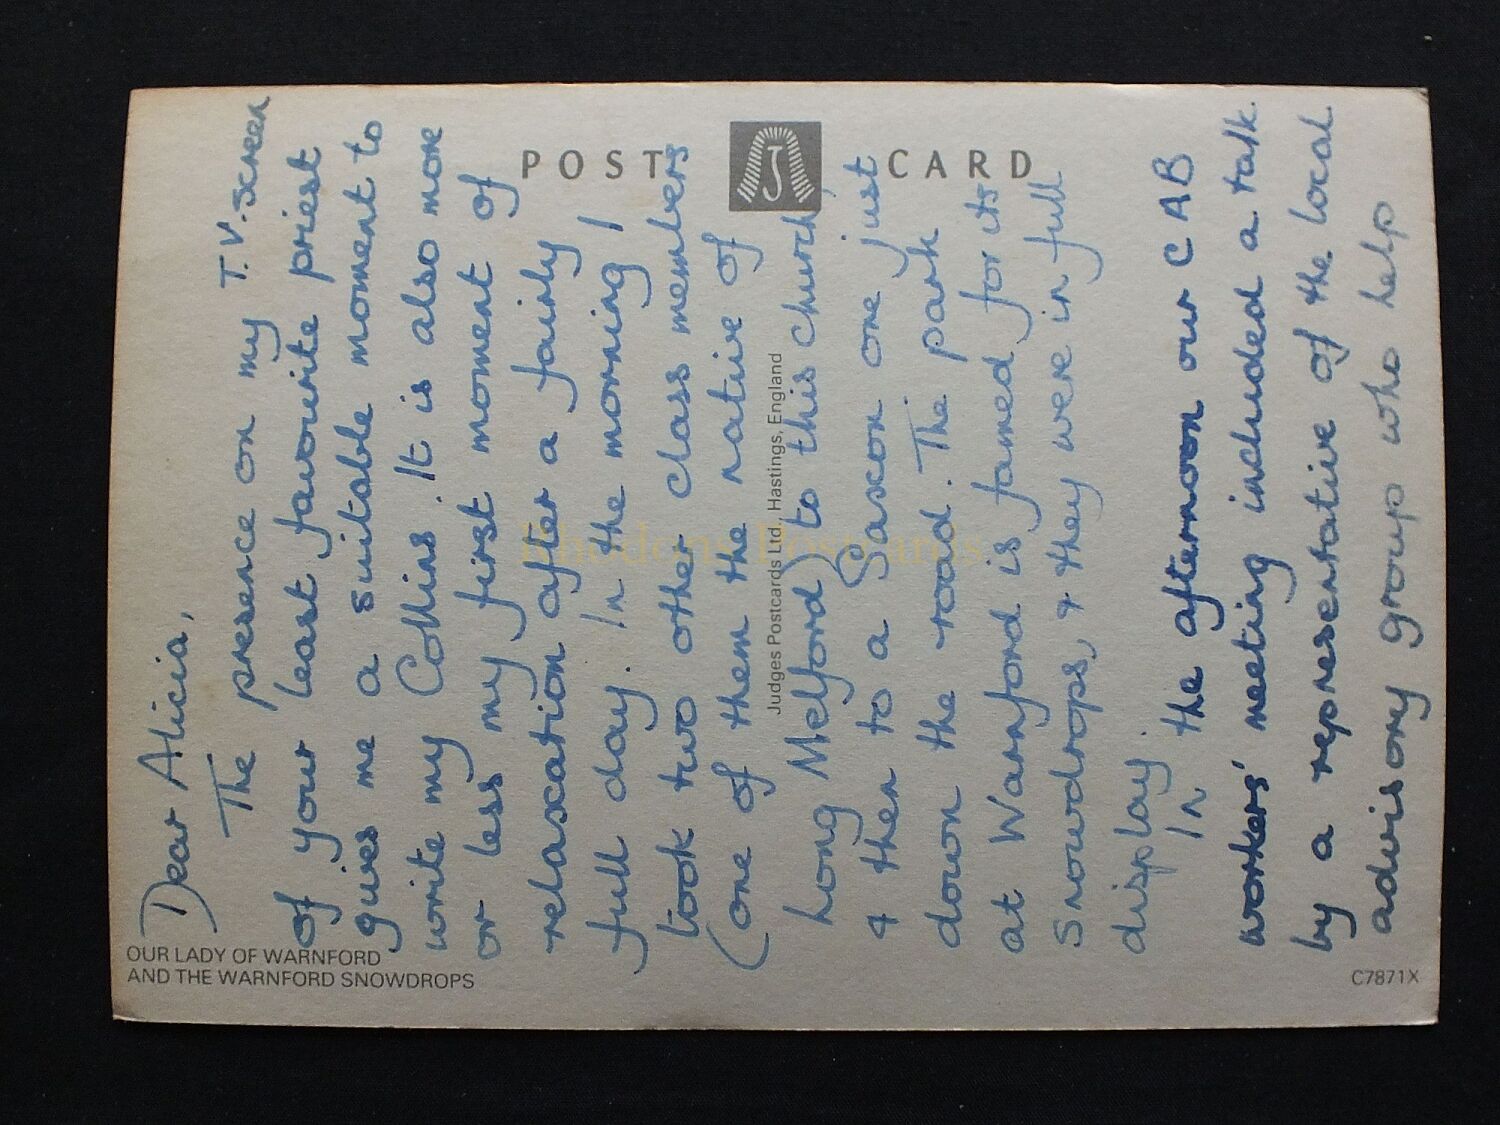 POST CARD
Judges Postcards Ltd., Hastings, England
OUR LADY OF WARNFORD
AND THE WARNFORD SNOWDROPS
C7871X
Rhodons Postcards
Dear Alicia,
The presence on my T.V. screen
of your least favourite priest
gives me a suitable moment to
write my Collins. It is also more
or less my first moment of
relaxation after a fairly
full day. In the morning I
took two other class members
(one of them the native of
Long Melford) to this church,
& then to a Saxon one just
down the road. The park
at Warnford is famed for its
snowdrops, & they were in full
display.
In the afternoon our CAB
workers' meeting included a talk
by a representative of the local
advisory group who help